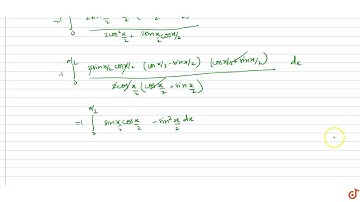 =1 ∫₀ 2sinx/2 x/2 ( x/2 - x/2 )
2cos²x/2 + 2sinx/2 cosx/2
=1 ∫₀^π/2 2sinx/2 cosx/2 (cosx/2 - sinx/2) (cosx/2 + sinx/2) dx
2cosx/2 (cosx/2 + sinx/2)
=1 ∫₀^π/2 sinx/2 cosx/2 - sin²x/2 dx